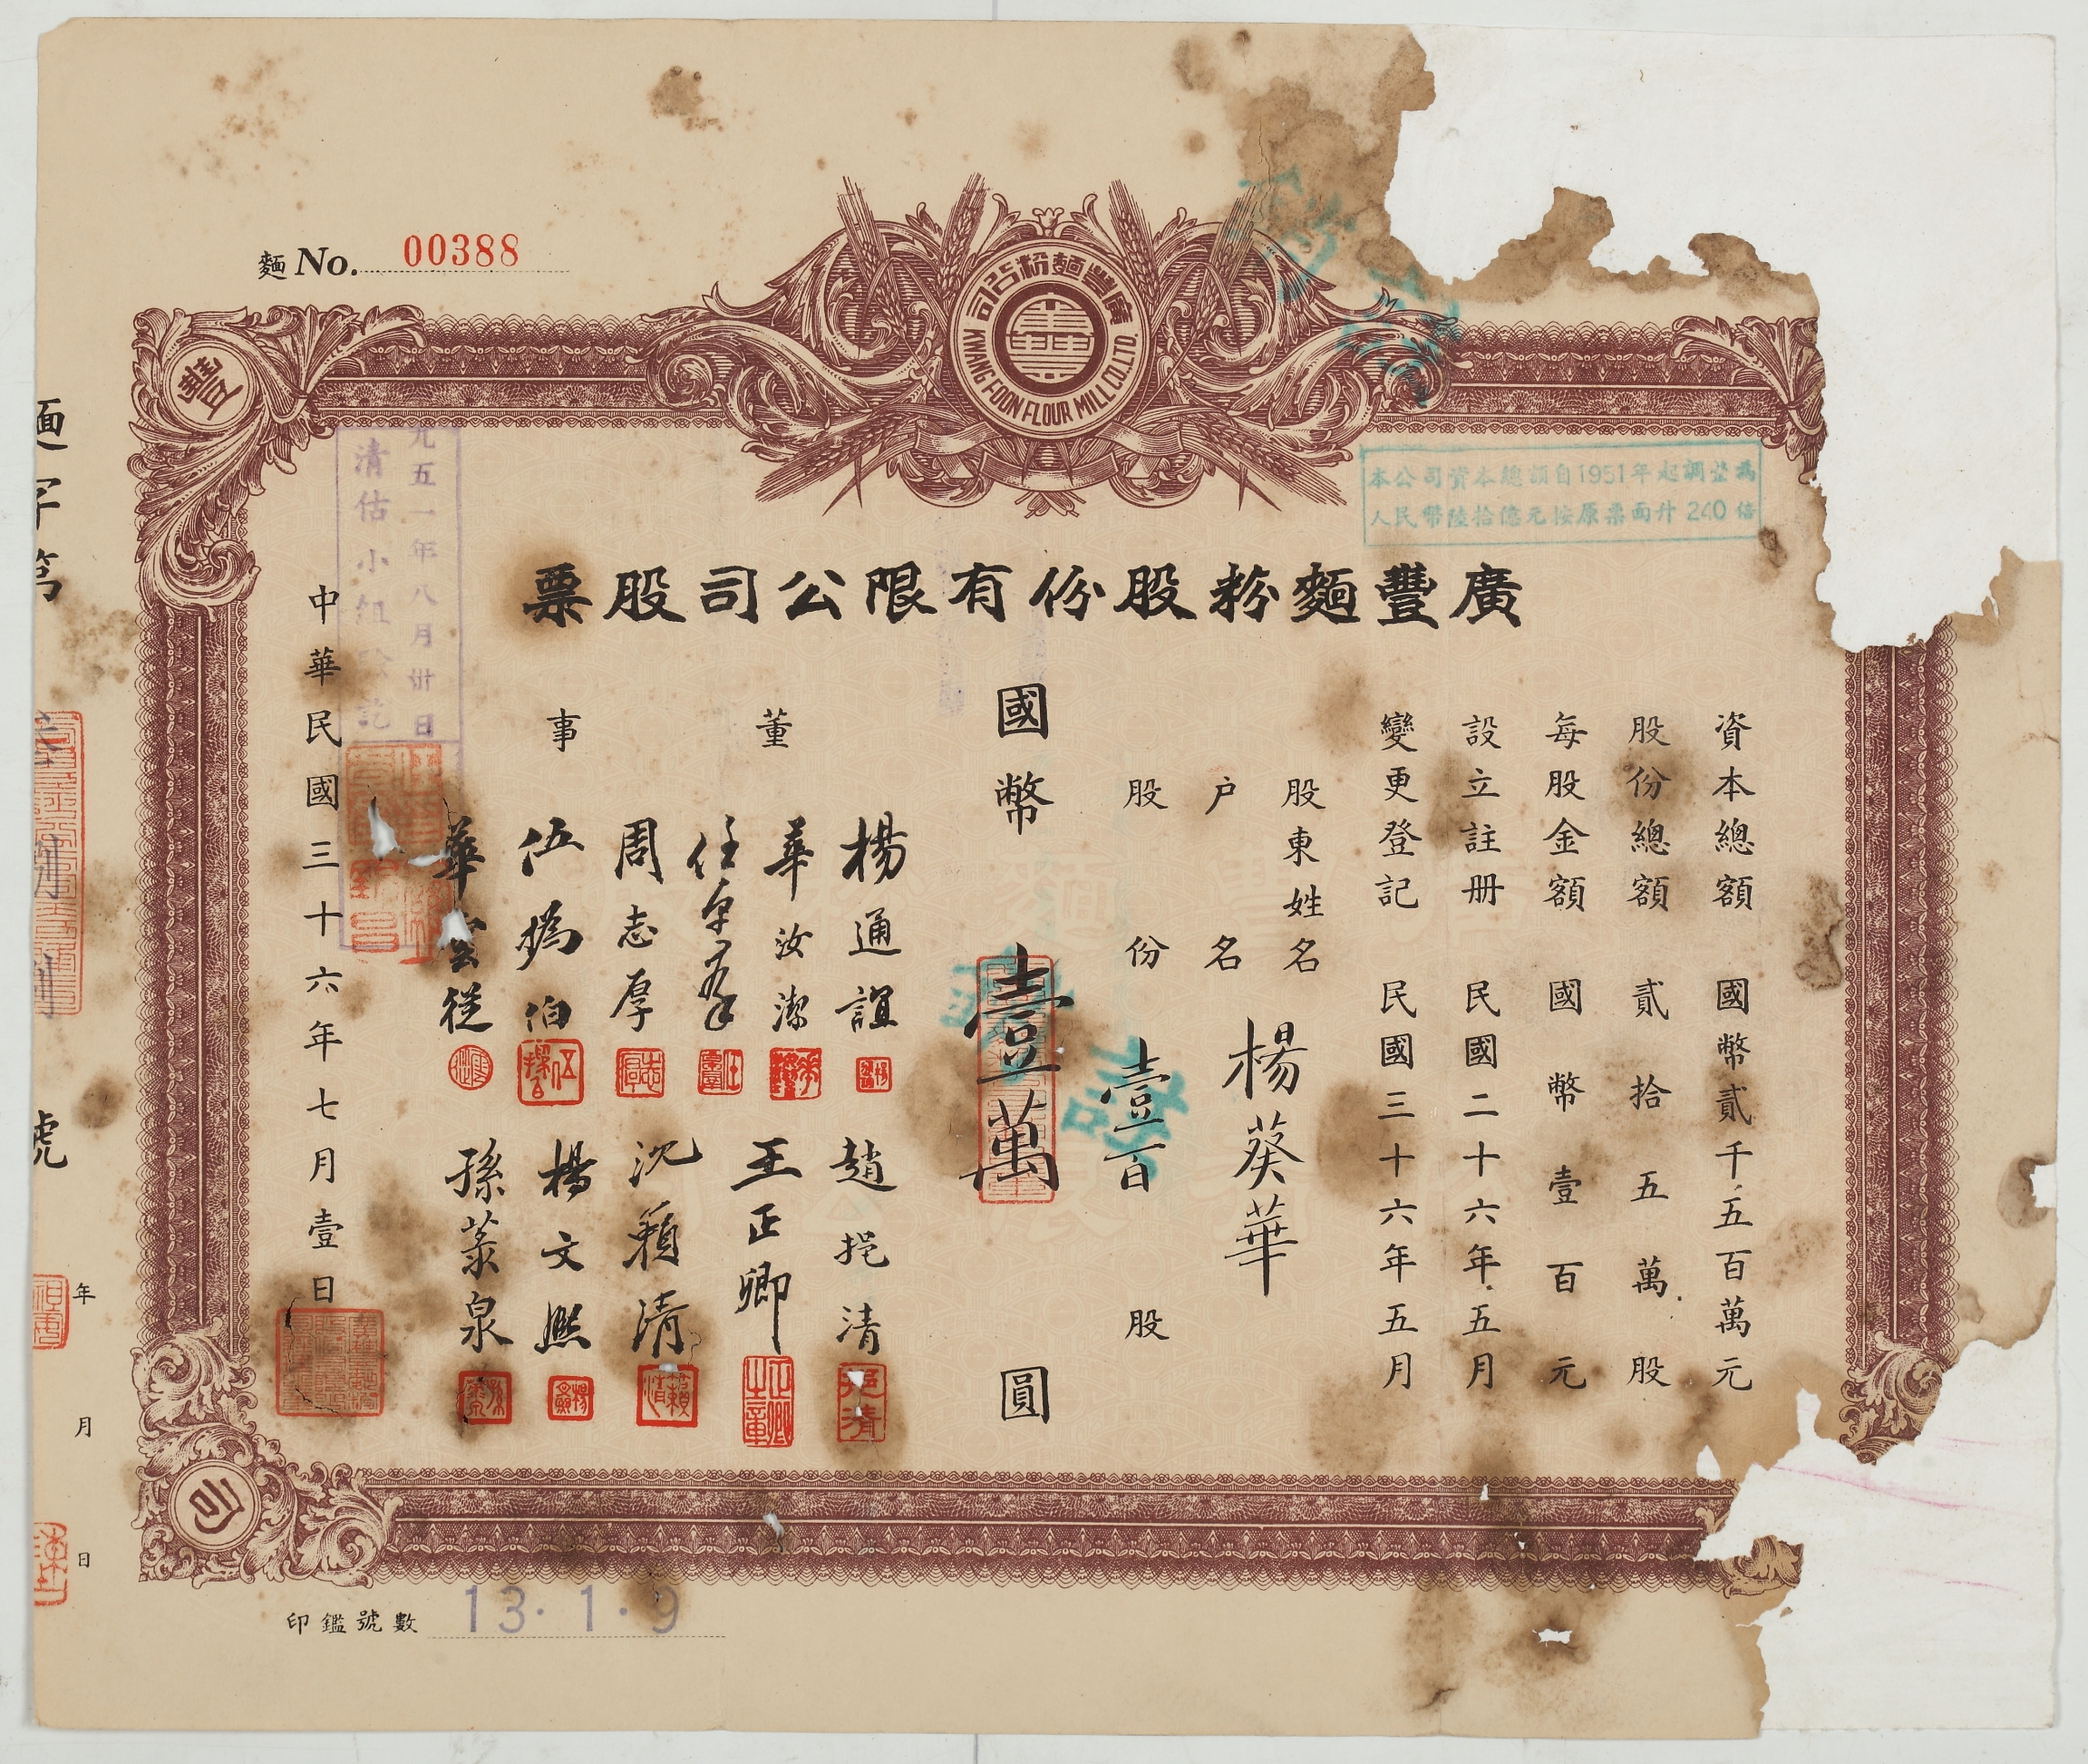 麵 No. 00388
廣豐麵粉公司
KWANG FOON FLOUR MILL CO. LTD.
豐
司
本公司資本總額自1951年起調整爲
人民幣陸拾億元按原票面升240倍
廣豐麵粉股份有限公司股票
資本總額 國幣貳千五百萬元
股份總額 貳拾五萬股
每股金額 國幣壹百元
設立註册 民國二十六年五月
變更登記 民國三十六年五月
股東姓名
戶名 楊葵華
股份 壹百 股
國幣 壹萬 圓
董事
楊通誼
華汝潔
任卓羣
周志厚
伍撝伯
華雲從
趙挹清
王正卿
沈籟清
楊文熙
孫蒸泉
中華民國三十六年七月壹日
五一年八月卅日
清估小組
麵字第 號
年 月 日
印鑑號數 13·1·9